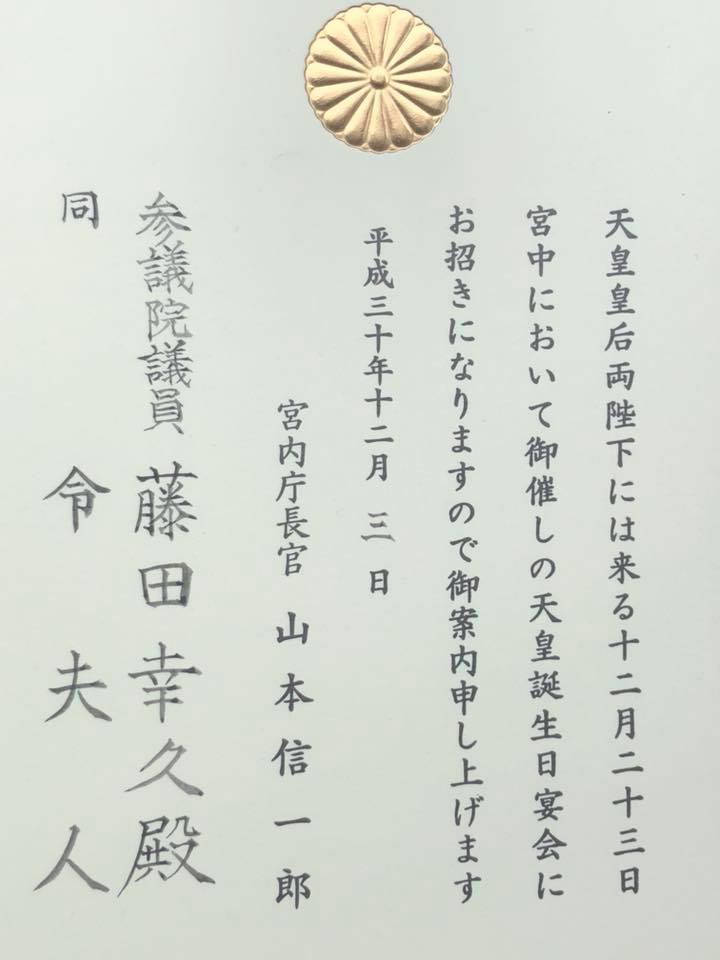 天皇皇后両陛下には来る十二月二十三日
宮中において御催しの天皇誕生日宴会に
お招きになりますので御案内申し上げます
平成三十年十二月三日
宮内庁長官 山本信一郎
参議院議員 藤田幸久殿
同 令夫人